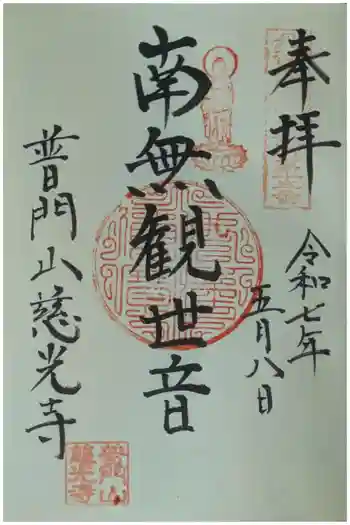 奉拝
令和七年
五月八日
南無観世音
普門山慈光寺